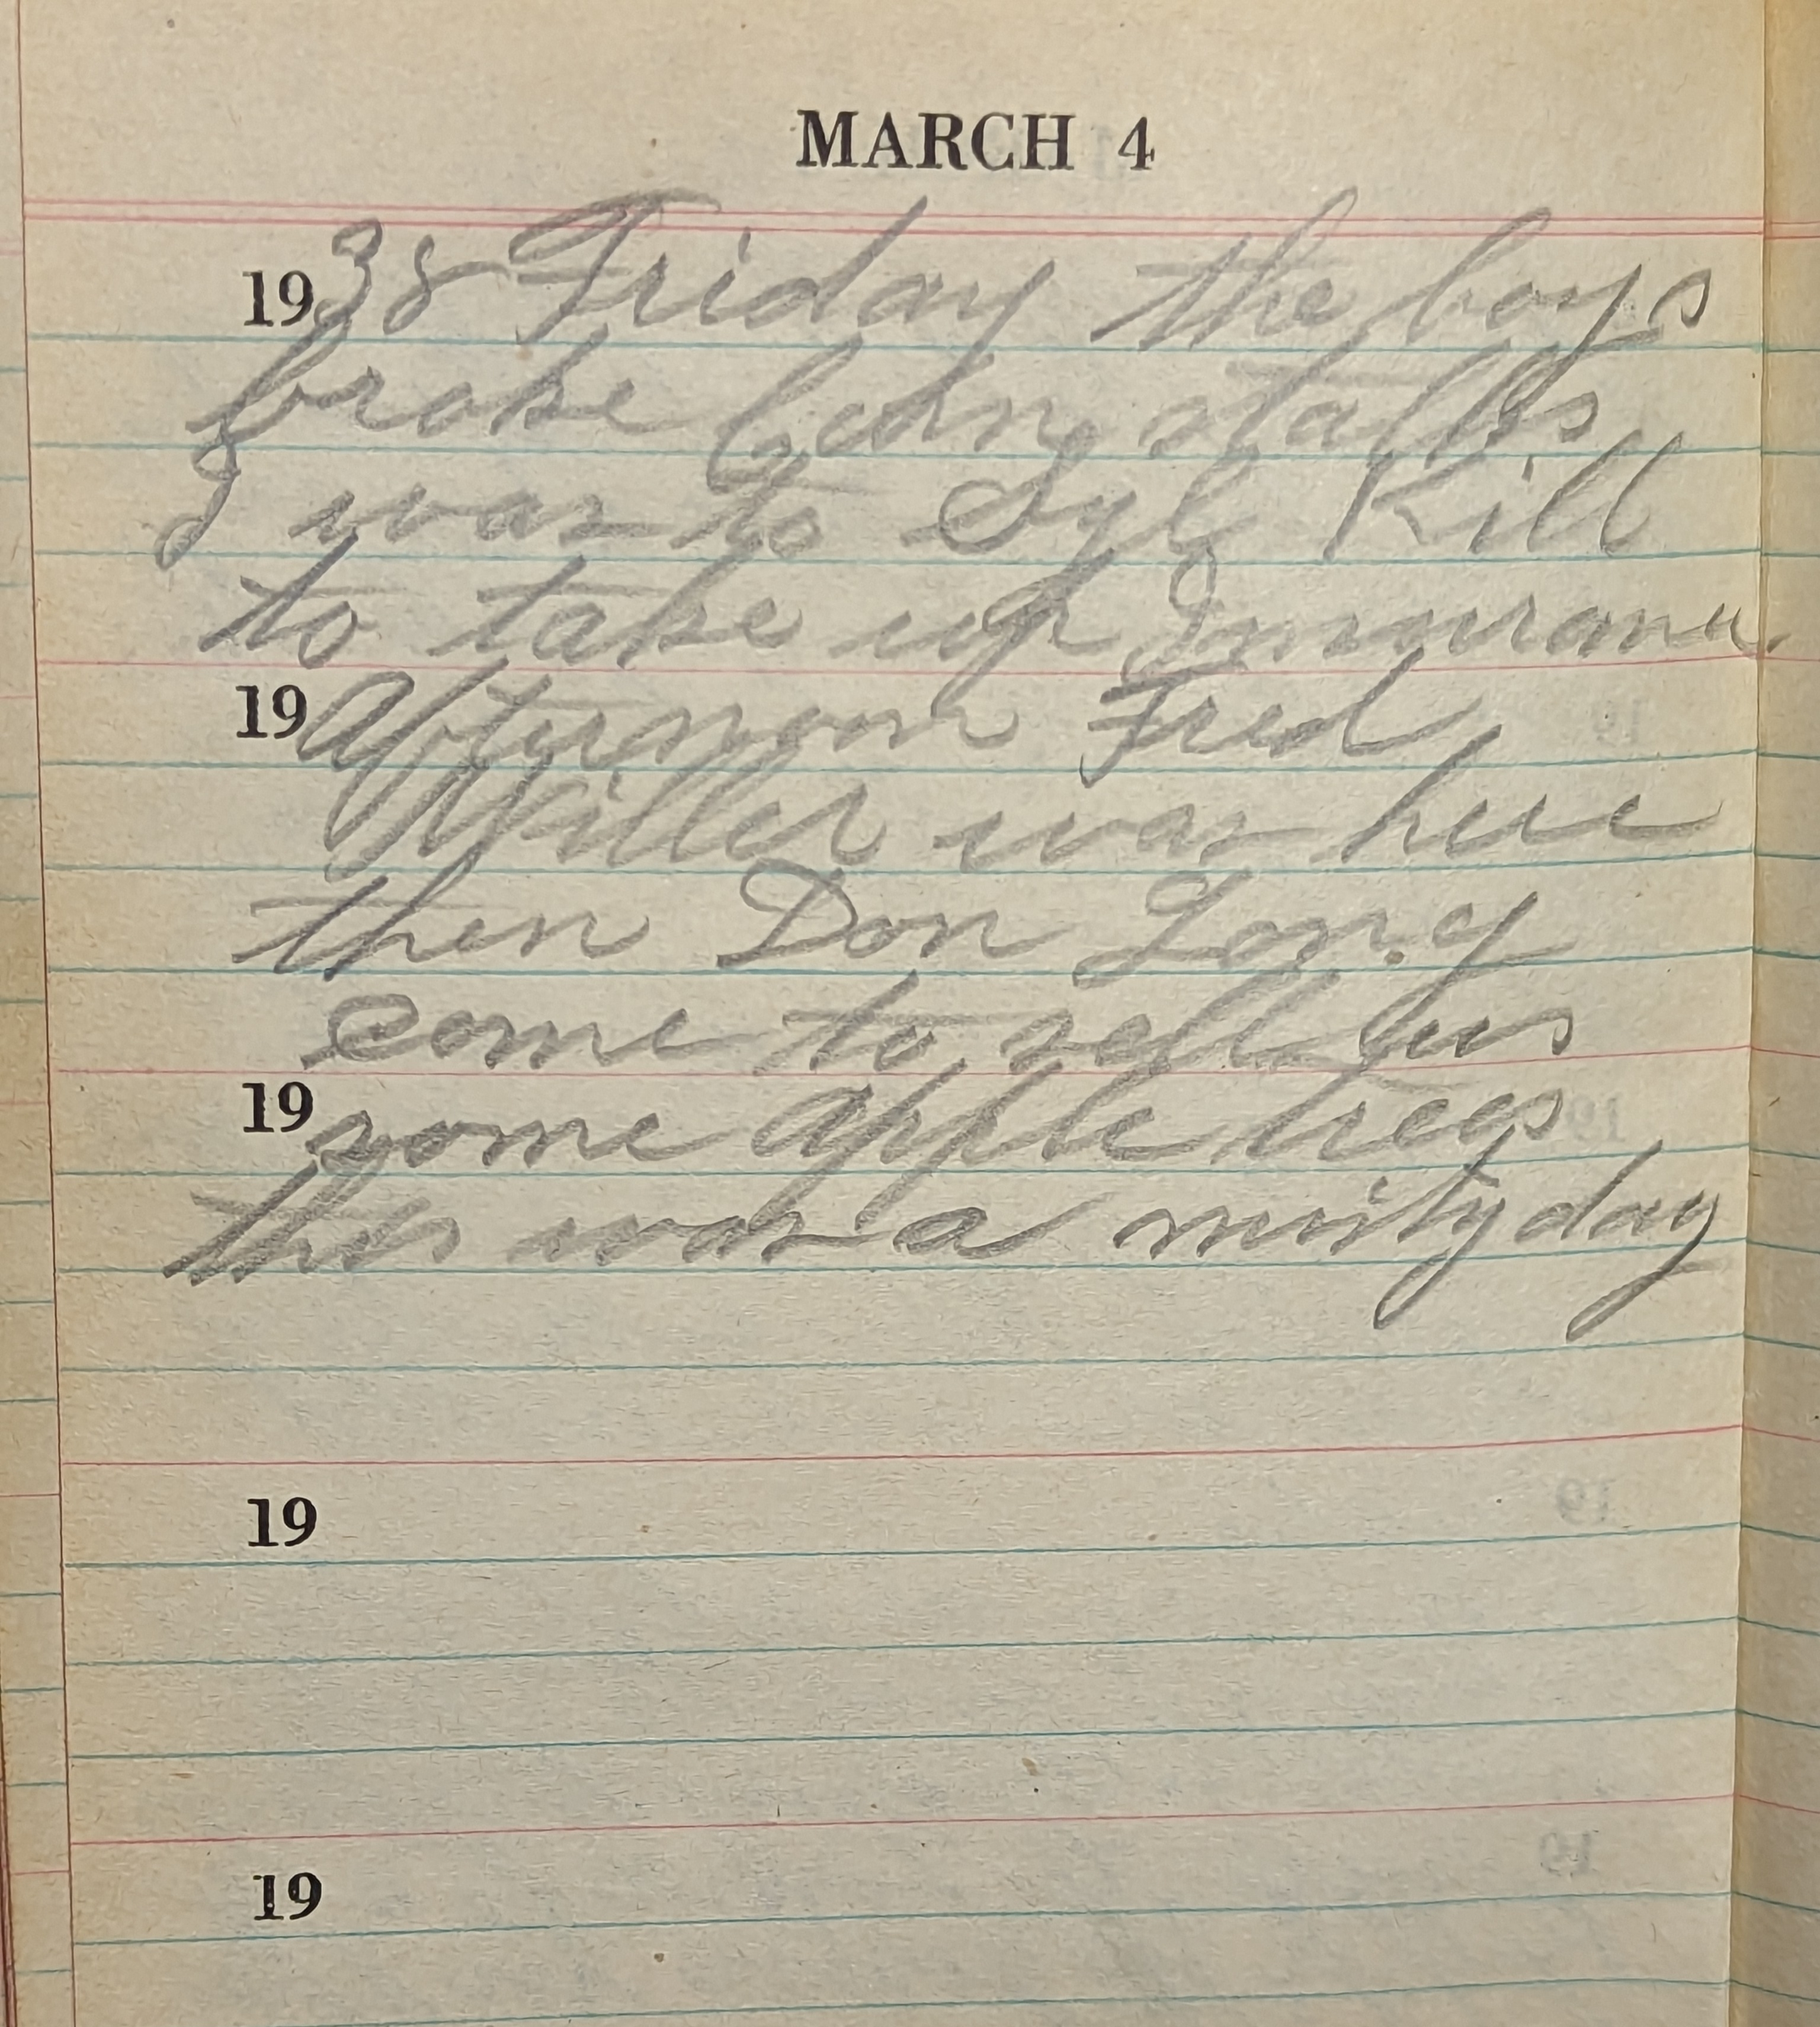 MARCH 4
1938 Friday the boys
broke Corn stalks
I was to Syl Kill
to take up Insurance.
19 Afternoon Fred
Miller was here
then Don Long
come to sell us
19 some apple trees
this was a misty day
19
19